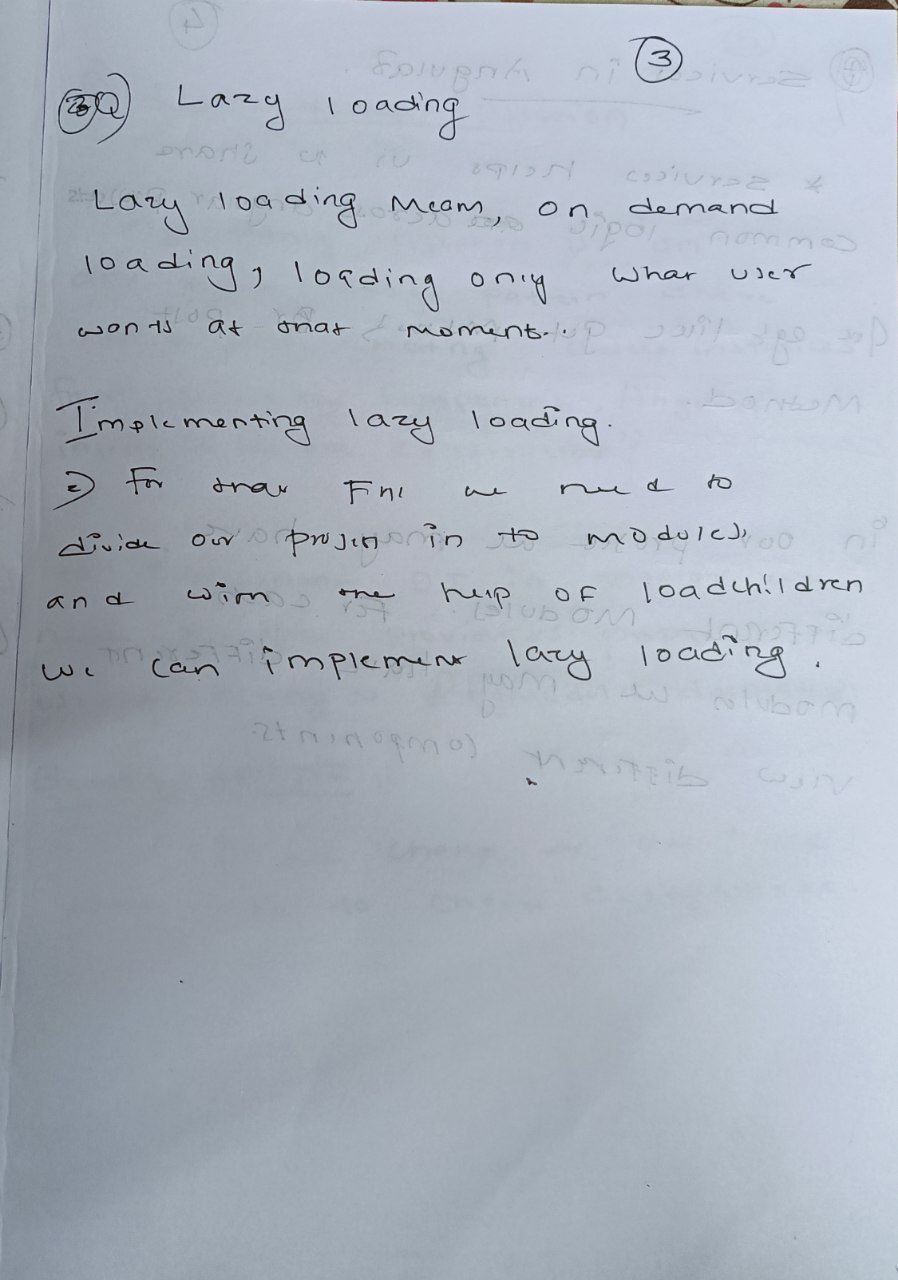 3
3Q) Lazy loading
Lazy loading Means, on demand
loading, loading only what user
wants at that moment..
Implementing lazy loading.
=> For that First we need to
divide our project in to modules,
and with the help of loadchildren
we can implement lazy loading.